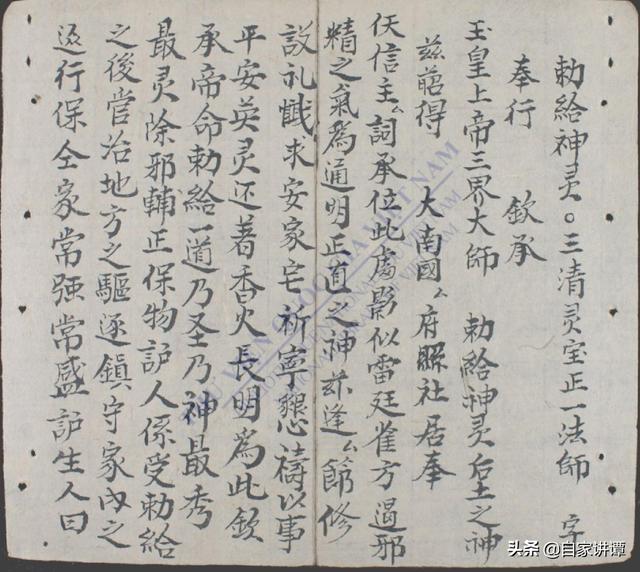 勅給神灵。三清灵宝正一法師 字
奉行 欽承
玉皇上帝三界大師 勅給神灵后土之神
茲蓜得 大南國厶府縣社居奉
仸信主厶詞承位此處影似雷廷雀方遏邪
精之氣爲通明正直之神茲逢厶節修
設礼懺求安家宅祈寧懇禱以事
平安英灵还著香火長明爲此欽
承帝命勅給一道乃圣乃神最秀
最灵除邪輔正保物护人係受勅給
之後管治地方之驅逐鎮守家内之
巡行保仝家常强常盛护生人曰
VIET NAM
头条 @自家讲谭